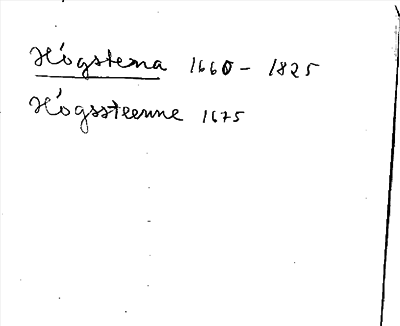 Högstena 1660 - 1825
Högssteenne 1675